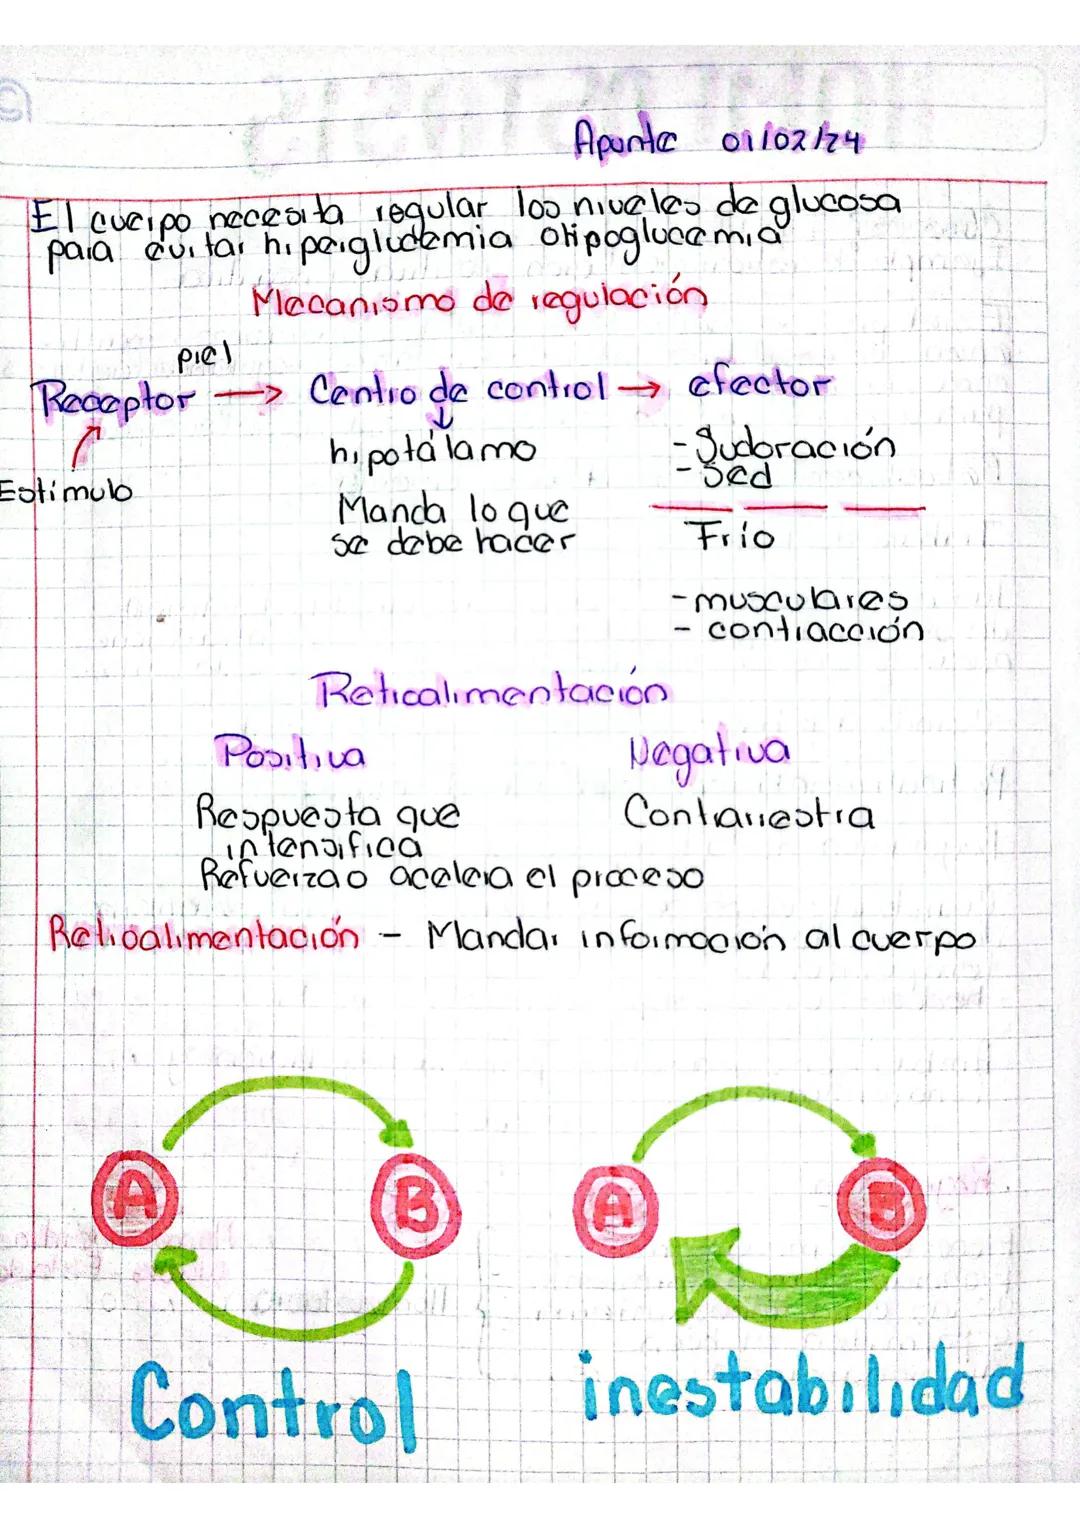 Apunte 01/02/24
El cuerpo necesita regular los niveles de glucosa
para evitar hiperglucemia o hipoglucemia
Mecanismo de regulación
piel
Receptor → Centro de control → efector
Estímulo
hipotálamo
Manda lo que
se debe hacer
- Sudoración
- Sed
Frío
- musculares
- contracción
Retroalimentación
Positiva
Respuesta que
intensifica
Refuerza o acelera el proceso
Negativa
Contrarrestra
Retroalimentación - Mandar información al cuerpo
A B
A B
Control
inestabilidad